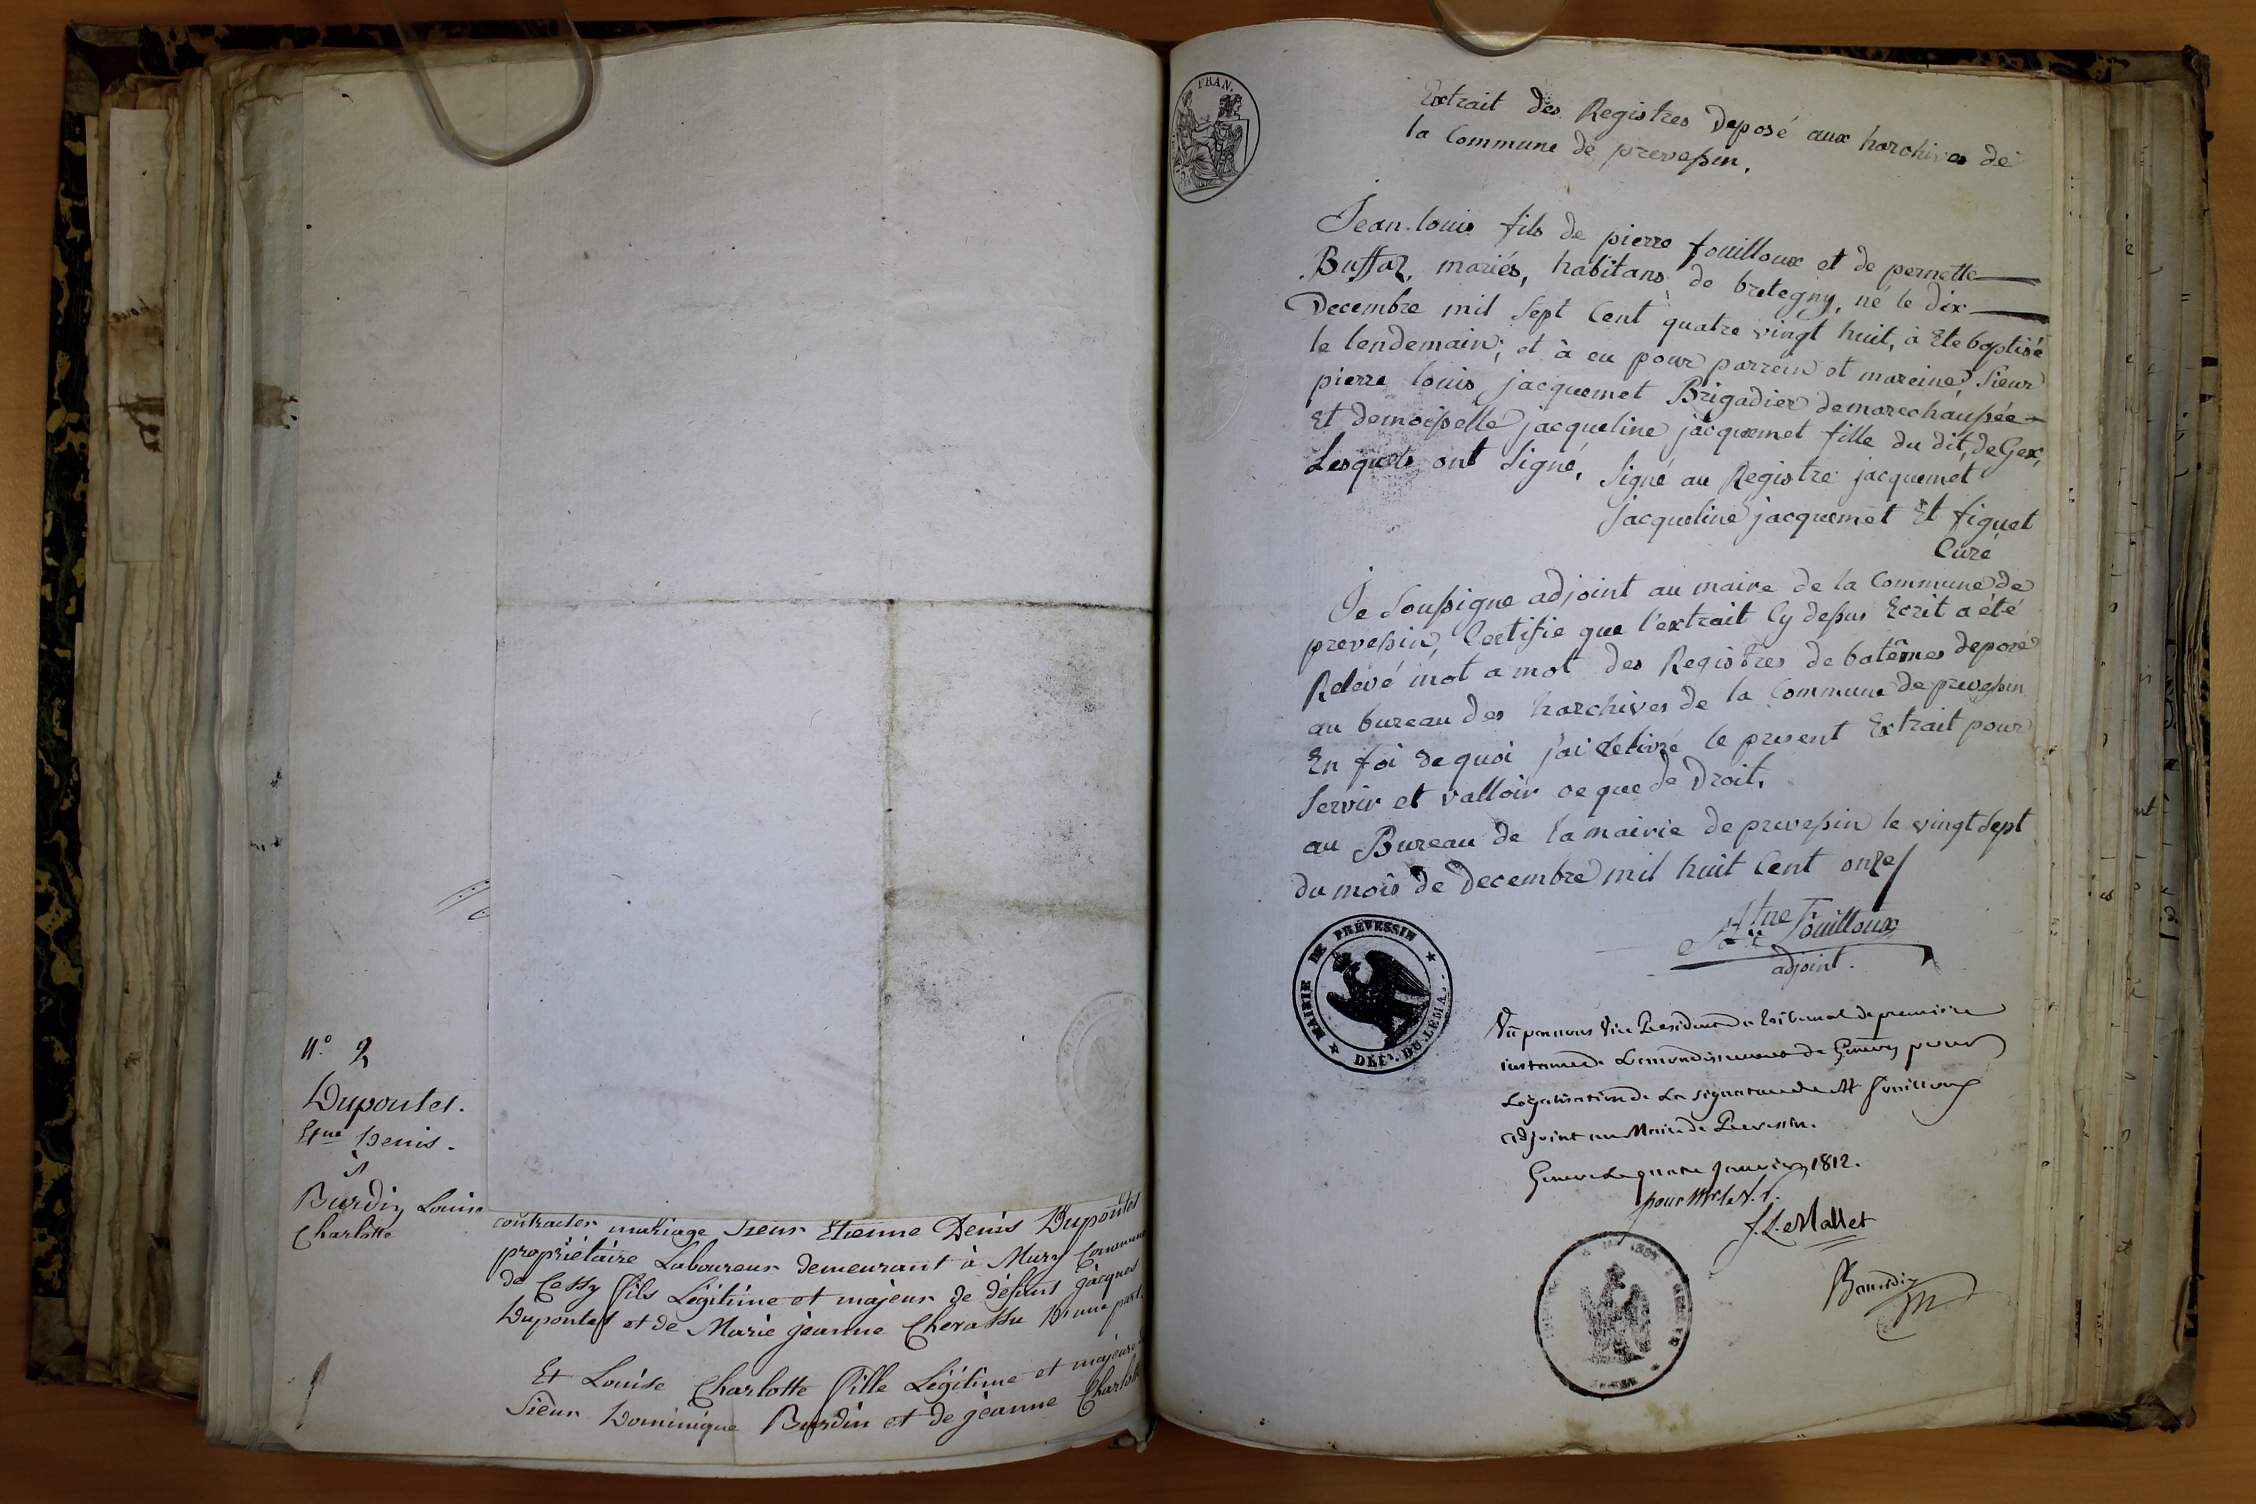 N.° 2
Dupontet.
Etne Denis.
à
Burdin Louise
Charlotte
contracter mariage Sieur Etienne Denis Dupontet
propriétaire Laboureur demeurant à Mury Commune
de Cessy fils Légitime et majeur de défunt jacques
Dupontet et de Marie jeanne Chevassu D'une part.
Et Louise Charlotte fille Légitime et majeure
Sieur Dominique Burdin et de jeanne Charlotte
FRAN.
Extrait des Registres deposé aux harchives de
la Commune de prevessin.
Jean-louis fils de pierre fouilloux et de pernette
Buffaz, mariés, habitans de bretegny, né le dix
Decembre mil sept Cent quatre vingt huit, à Ete baptisé
le lendemain; et à eu pour parrein et mareine Sieur
pierre louis jacquemet Brigadier de marechaussée
Et demoisselle jacqueline jacquemet fille du dit, de Gex,
Lesquels ont Signé, Signé au Registre jacquemet
jacqueline jacquemet Et figuet
Curé
Je Soussigne adjoint au maire de la Commune de
prevessin, Certifie que l'extrait Cy dessus Ecrit a été
Relevé mot a mot des Registres de batêmes deposé
au bureau des harchives de la Commune de prevessin
En foi de quoi j'ai delivré le present Extrait pour
Servir et valloir ce que de Droit,
au Bureau de la mairie de prevessin le vingt Sept
du mois de Decembre mil huit Cent onze
Fouilloux
adjoint.
MAIRIE DE PRÉVESSIN
DÉPt. DU LÉMAN
Vu par nous Vice Président du Tribunal de premiere
instance de L'arrondissement de Genève pour
Légalisation de La signature de Mr fouilloux
adjoint au Maire de Prevessin.
Geneve Le quatre Janvier 1812.
pour Mr le V. P.
J. L. Mallet
Bourdin